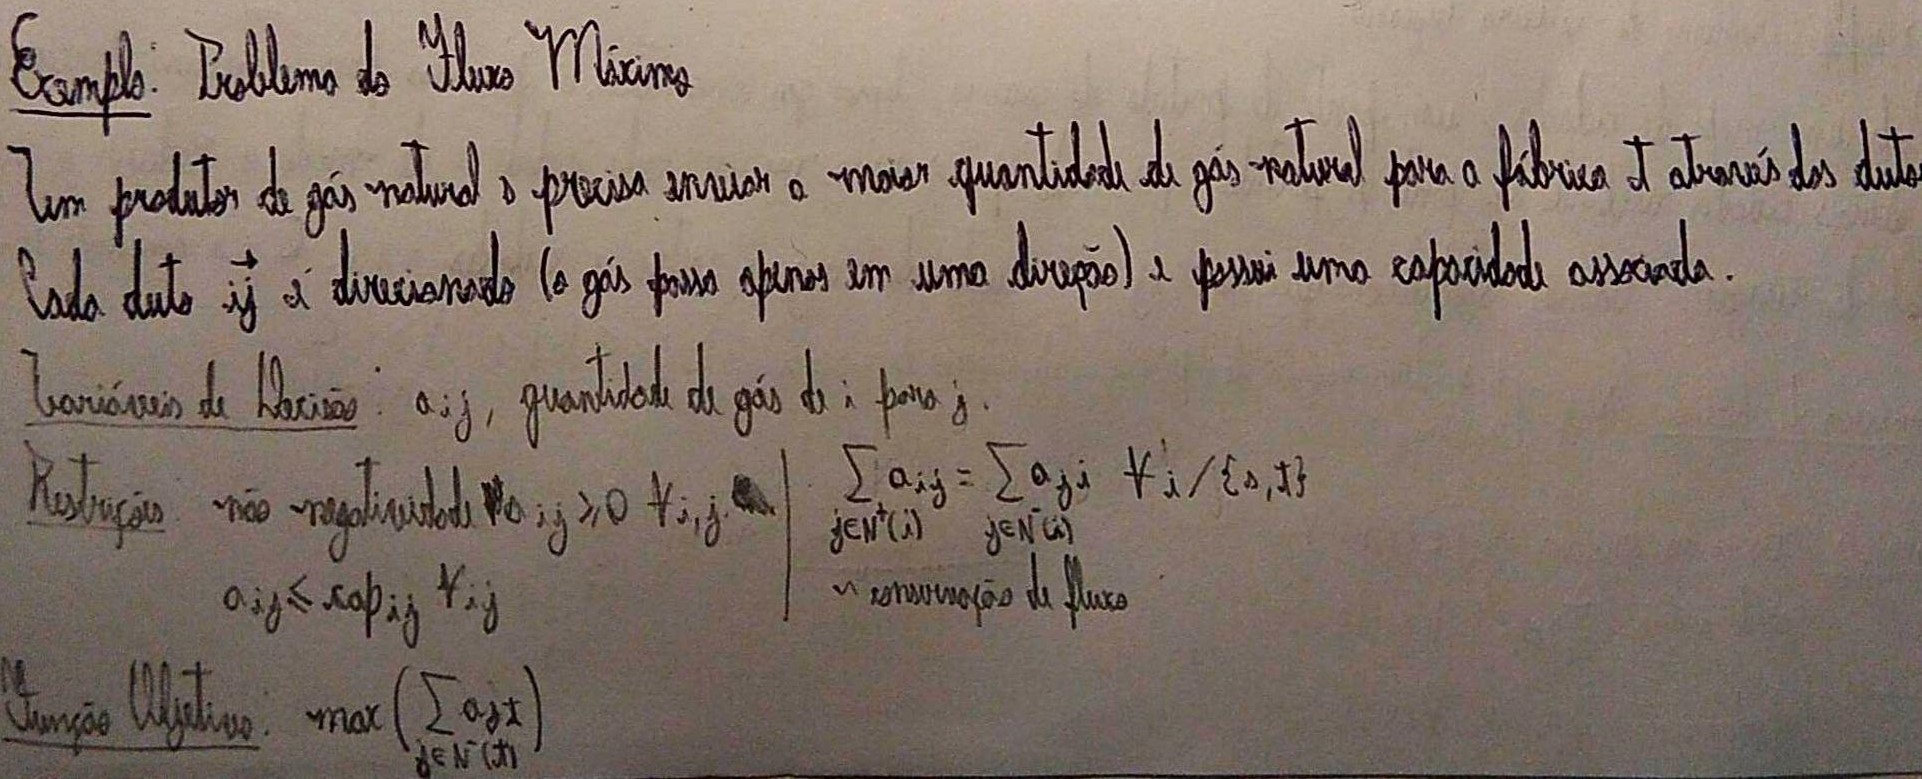 Exemplo: Problema do Fluxo Máximo
Um produtor de gás natural s precisa enviar a maior quantidade de gás natural para a fábrica t através dos duto
Cada duto ij é direcionado (o gás passa apenas em uma direção) e possui uma capacidade associada.
Variáveis de Decisão: aij, quantidade de gás de i para j.
Restrições: não negatividade aij ≥ 0 ∀i,j. | ∑ aij = ∑ aji ∀i/{s,t}
j∈N⁺(i) j∈N⁻(i)
aij ≤ capij ∀ij
~ conservação de fluxo
Função Objetivo: max(∑ ajt)
j∈N⁻(t)